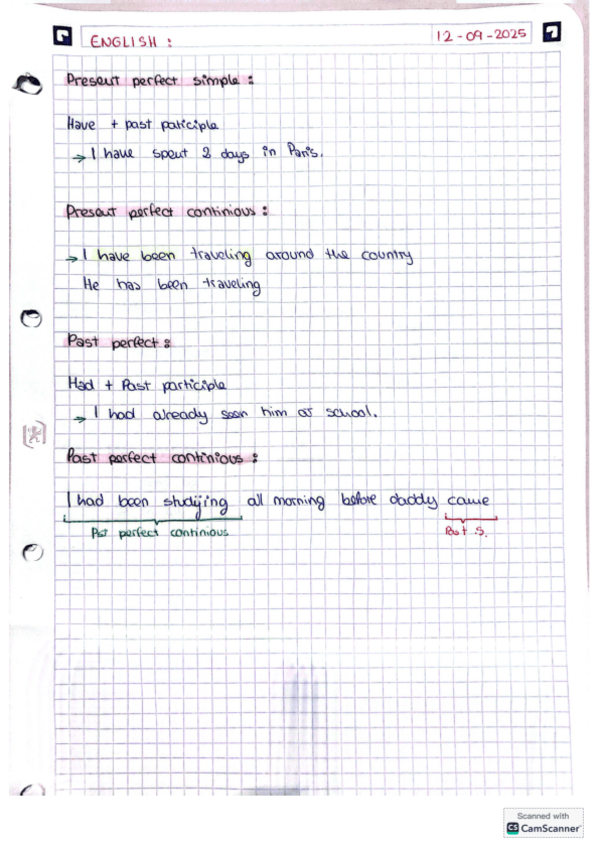 ENGLISH :
12-09-2025
Present perfect simple :
Have + past paticiple
→ I have spent 2 days in Paris.
Present perfect continious :
→ I have been traveling around the country
He has been traveling
Past perfect :
Had + Past participle
→ I had already seen him at school.
Past perfect continious :
I had been studijing all morning before daddy came
Pst perfect continious
Past S.
Scanned with
CS CamScanner